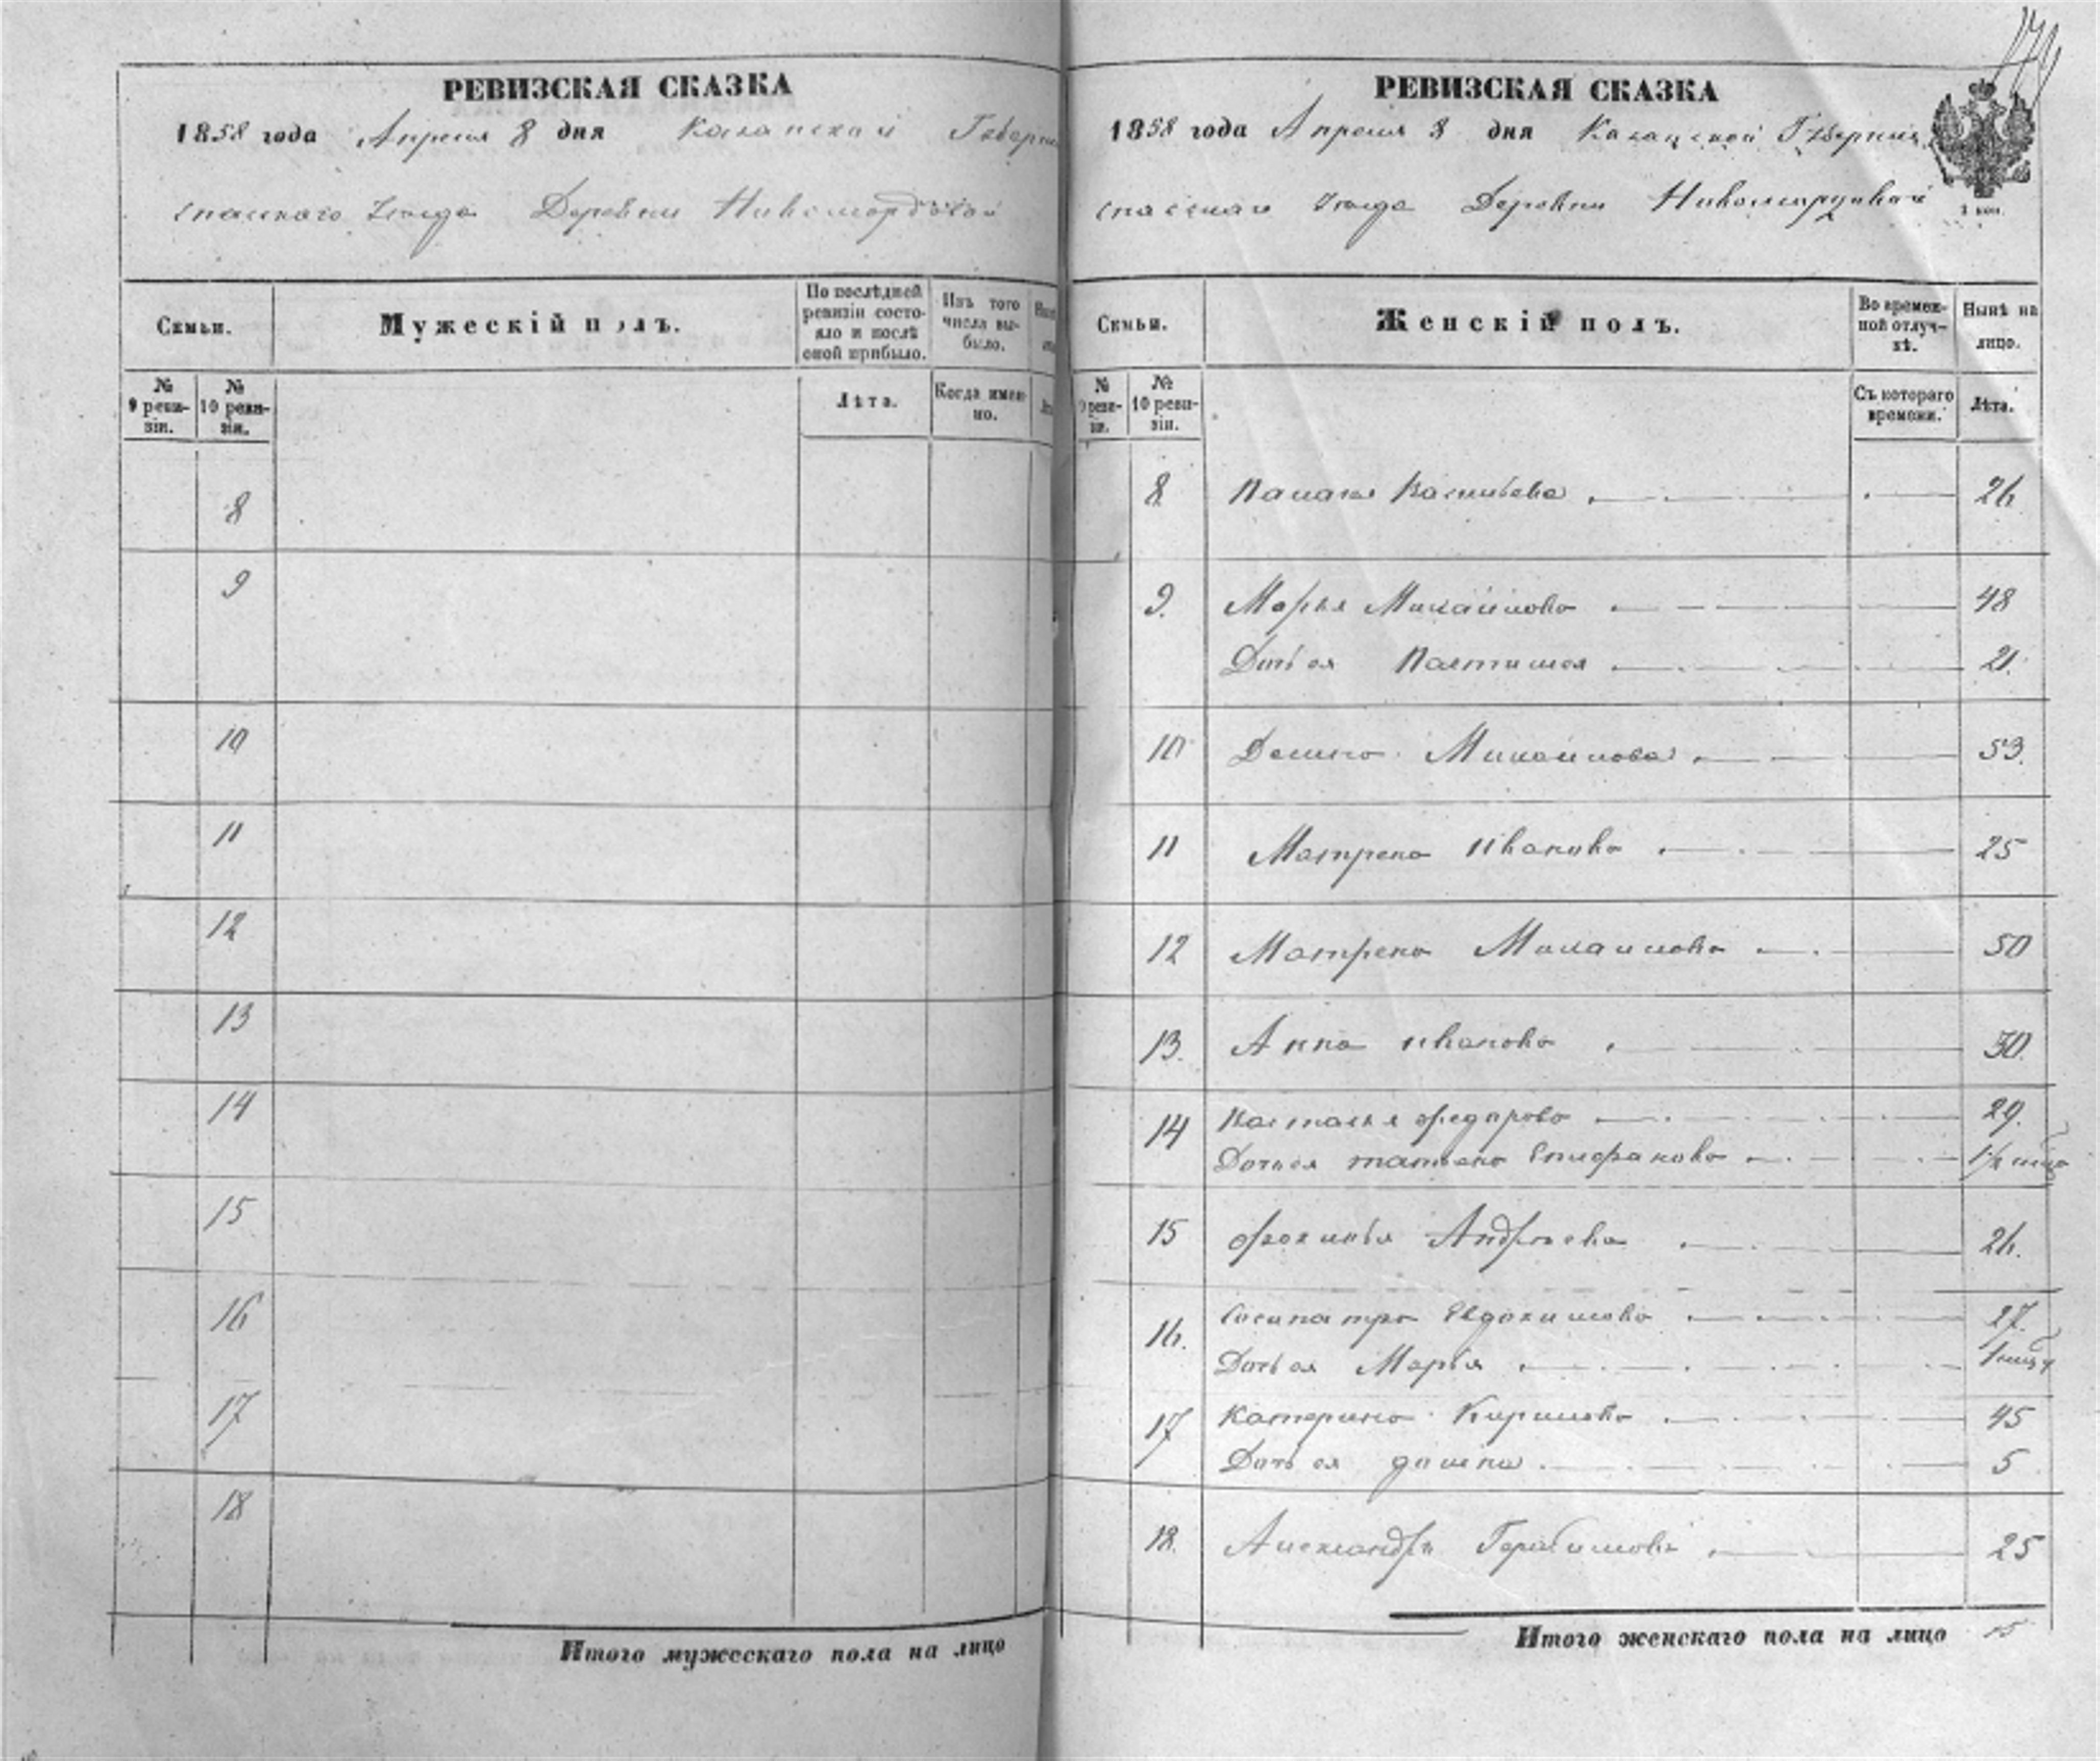 РЕВИЗСКАЯ СКАЗКА
1858 года Апреля 8 дня Казанской Губерни
спаского Уезда Деревни
Семьи.
Мужескій полъ.
По послѣдней ревизіи состояло и послѣ оной прибыло.
Изъ того числа выбыло.
№ 9 ревизіи.
№ 10 ревизіи.
Лѣта.
Когда именно.
8
9
10
11
12
13
14
15
16
17
18
Итого мужескаго пола на лицо
РЕВИЗСКАЯ СКАЗКА
1858 года Апреля 8 дня Казанской Губернии
спаскаго Уезда Деревни
Семьи.
Женскій полъ.
Во временной отлучкѣ.
Нынѣ на лицо.
№ 9 ревизіи.
№ 10 ревизіи.
Съ котораго времени.
Лѣта.
8 Васильева 26
9. Марья Михайлова 48
Дочь ея 21.
10 Михаилова 53.
11 Матрена Иванова 25
12 Матрена Михаилова 50
13. Анна иванова 30.
14 Насталья Федарова 29.
Дочь ея татьяна Епифанова
15 Андреева 26.
16. Сосипатра Евдокимова 27.
Дочь ея Марья
17 Катерина Кирилова 45
Дочь ея 5
18. Александра Герасимова 25
Итого женскаго пола на лицо 15